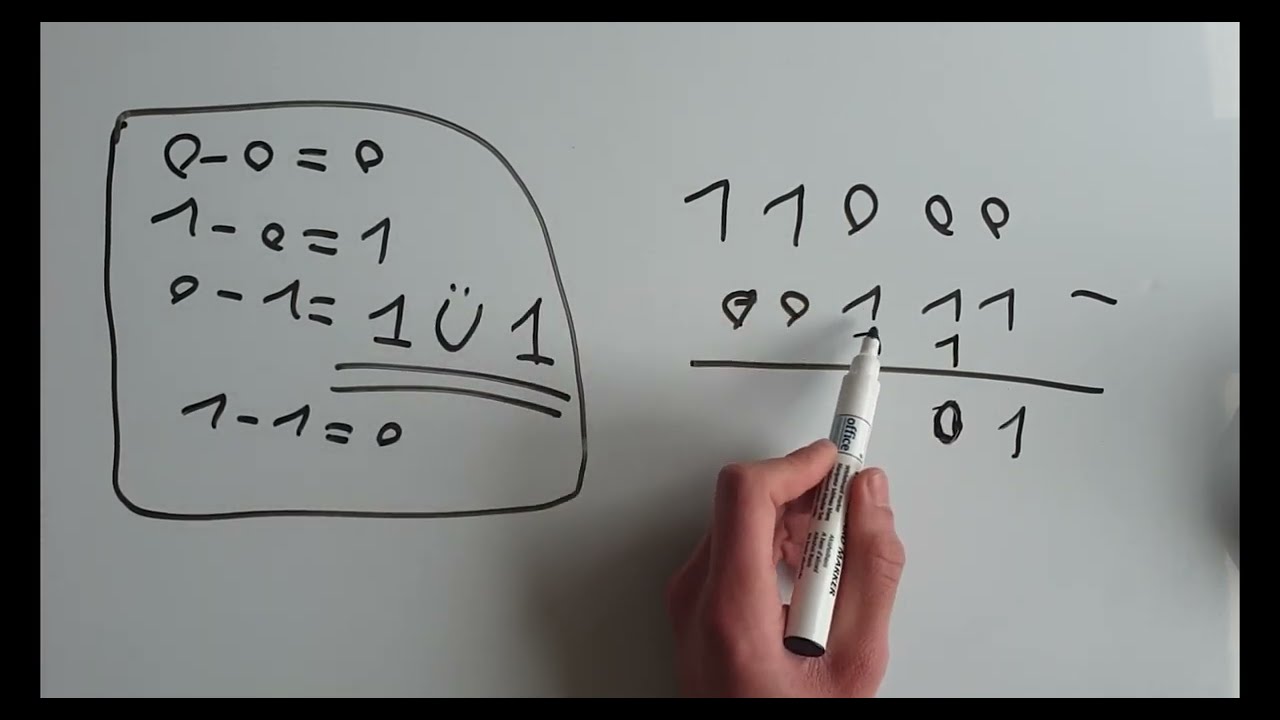 0 - 0 = 0
1 - 0 = 1
0 - 1 = 1 Ü 1
1 - 1 = 0
1 1 0 0 0
0 0 1 1 1 -
1 1
0 1
office